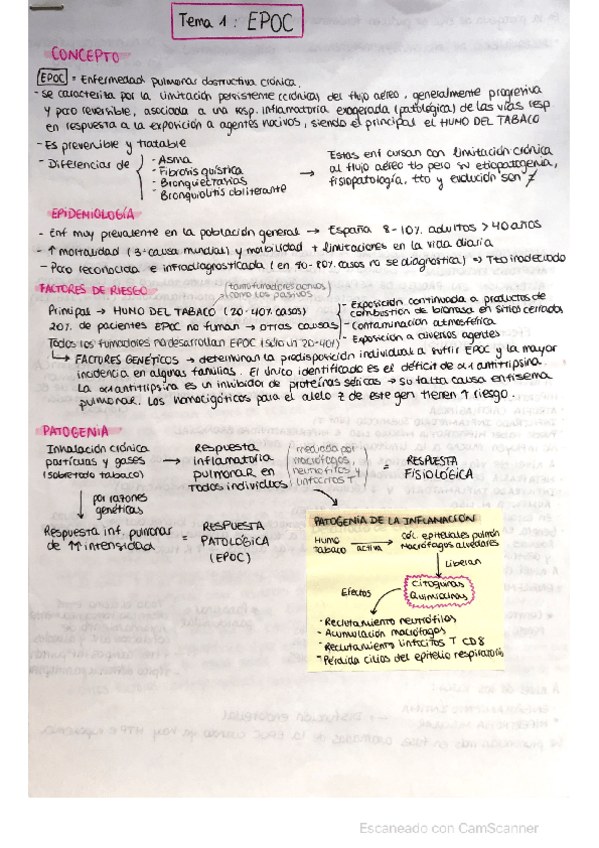 Tema 1: EPOC
CONCEPTO
EPOC = Enfermedad pulmonar obstructiva crónica.
- Se caracteriza por la limitación persistente (crónica) del flujo aéreo, generalmente progresiva
y poco reversible, asociada a una resp. inflamatoria exagerada (patológica) de las vías resp
en respuesta a la exposición a agentes nocivos, siendo el principal el HUMO DEL TABACO
- Es prevenible y tratable
- Diferencias de
- Asma
- Fibrosis quística
- Bronquiectasias
- Bronquiolitis obliterante
→ Estas enf cursan con limitación crónica
al flujo aéreo tb pero su etiopatogenia,
fisiopatología, tto y evolución son ≠
EPIDEMIOLOGÍA
- Enf muy prevalente en la población general → España 8-10% adultos > 40 años
- ↑ mortalidad (3ª causa mundial) y morbilidad + limitaciones en la vida diaria
- Poco reconocida e infradiagnosticada (en 70-80% casos no se diagnostica) ⇒ Tto inadecuado
FACTORES DE RIESGO
(tanto fumadores activos
como los pasivos)
Principal → HUMO DEL TABACO (20-40% casos)
20% de pacientes EPOC no fuman → otras causas
- Exposición continuada a productos de
combustión de biomasa en sitios cerrados
- Contaminación atmosférica
- Exposición a diversos agentes
Todos los fumadores no desarrollan EPOC (sólo un 20-40%)
↳ FACTORES GENÉTICOS → determinan la predisposición individual a sufrir EPOC y la mayor
incidencia en algunas familias. El único identificado es el déficit de α1 antitripsina.
La α1 antitripsina es un inhibidor de proteínas séricas → su falta causa enfisema
pulmonar. Los homocigóticos para el alelo Z de este gen tienen ↑ riesgo.
PATOGENIA
Inhalación crónica
partículas y gases
(sobretodo tabaco)
→ Respuesta
inflamatoria
pulmonar en
todos individuos
(mediada por
macrófagos,
neutrófilos y
linfocitos T)
= RESPUESTA
FISIOLÓGICA
↓ por razones
genéticas
Respuesta inf. pulmonar
de ↑↑ intensidad
= RESPUESTA
PATOLÓGICA
(EPOC)
PATOGENIA DE LA INFLAMACIÓN
Humo
Tabaco
→ activa
Cél. epiteliales pulmón
Macrófagos alveolares
↓ Liberan
Citoquinas
Quimiocinas
Efectos
- Reclutamiento neutrófilos
- Acumulación macrófagos
- Reclutamiento linfocitos T CD8
- Pérdida cilios del epitelio respiratorio
Escaneado con CamScanner